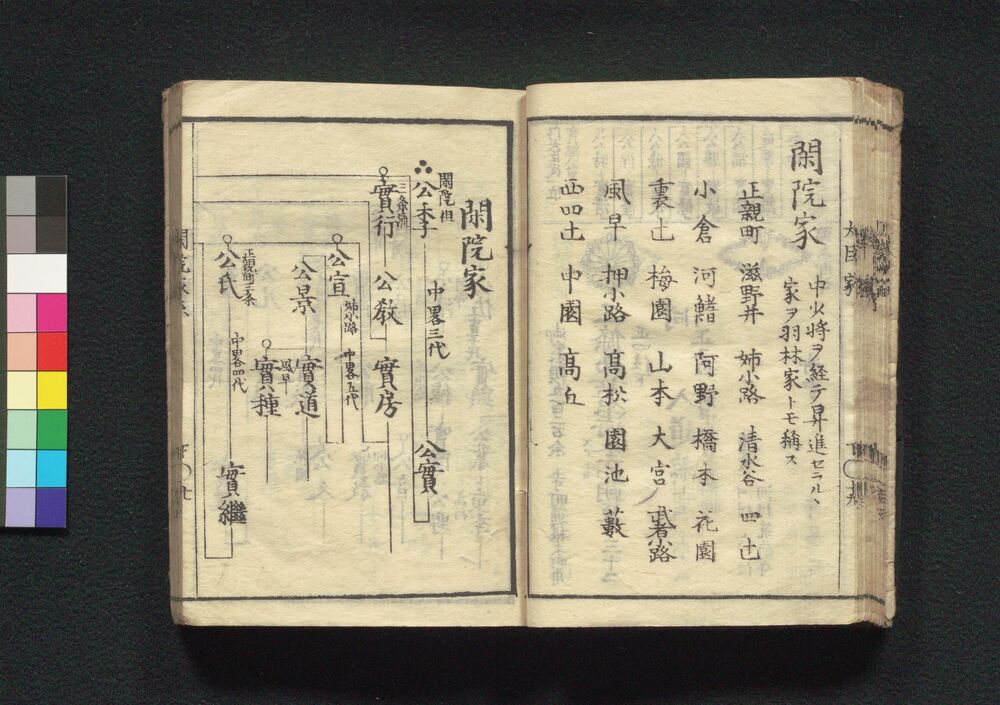 閑院家
中少將ヲ経テ昇進セラルヽ
家ヲ羽林家トモ稱ス
正親町 滋野井 姉小路 清水谷 四辻
小倉 河鰭 阿野 橋本 花園
裏辻 梅園 山本 大宮 武者小路
風早 押小路 髙松 園池 藪
西四辻 中園 髙丘
閑院家
閑院祖
公季 中畧三代 公實
三条流
實行 公教 實房
公宣 姉小路 中畧五代
公景 實道
風早
實種
正親町三条
公氏 中畧四代 實繼